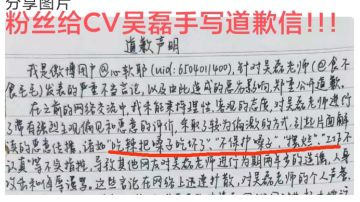 分享图片
粉丝给CV吴磊手写道歉信!!!
道歉声明
我是微博用户@心软耶(uid:6504011400),针对吴磊老师(@食不
食毛毛)发表的严重不当言论,以及由此造成的恶劣影响,郑重公开道歉。
在之前的网络交流中,我未能秉持理性、客观的态度,对吴磊老师进行
了带有强烈主观偏见和恶意的评价,采取了较为偏激的方式,引起片面解
读的恶意传播,诸如"吃辣把嗓子吃坏了""不保护嗓子""摆烂""工作不
认真"等不实指控,导致其他网友对吴磊老师进行为期两年多的造谣、人身
以及言论在网络上迅速扩散,对吴磊老师的个人声誉、